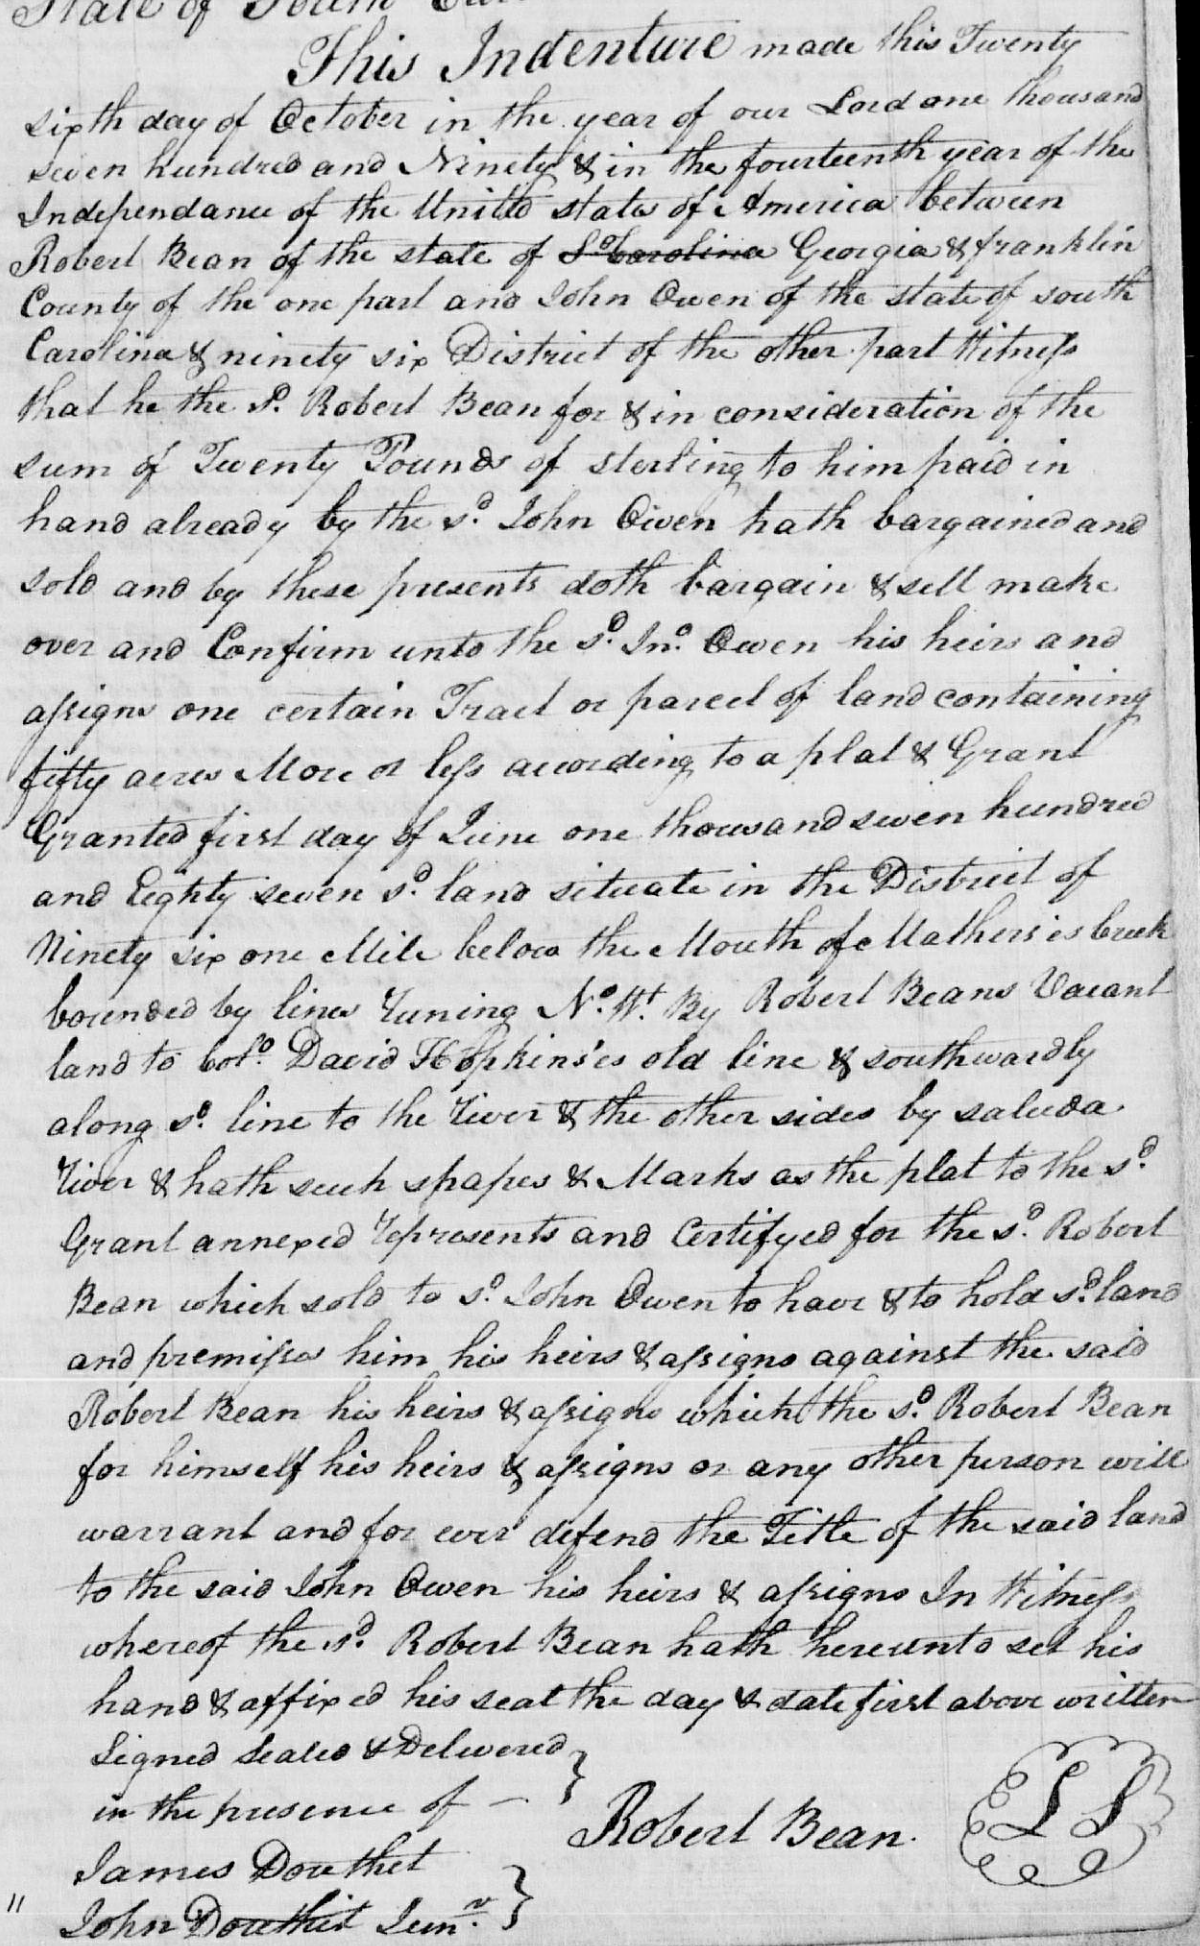 State of South
This Indenture made this Twenty
sixth day of October in the year of our Lord one thousand
seven hundred and Ninety & in the fourteenth year of the
Independance of the United states of America between
Robert Bean of the state of So Carolina Georgia & franklin
County of the one part and John Owen of the state of south
Carolina & ninety six District of the other part Witness
that he the sd. Robert Bean for & in consideration of the
sum of Twenty Pounds of sterling to him paid in
hand already by the sd. John Owen hath bargained and
sold and by these presents doth bargain & sell make
over and Confirm unto the sd. Jno. Owen his heirs and
assigns one certain Tract or parcel of land containing
fifty acres More or less according to a plat & Grant
Granted first day of June one thousand seven hundred
and Eighty seven sd. land situate in the District of
Ninety six one Mile below the Mouth of Mathers'es Creek
bounded by lines runing No. Wt. By Robert Beans Vacant
land to Colo. David Hopkins'es old line & southwardly
along sd. line to the river & the other sides by saluda
river & hath such shapes & Marks as the plat to the sd.
Grant annexed represents and Certifyed for the sd. Robert
Bean which sold to sd. John Owen to have & to hold sd. land
and premisses him his heirs & assigns against the said
Robert Bean his heirs & assigns which the sd. Robert Bean
for himself his heirs & assigns or any other person will
warrant and for ever defend the Title of the said land
to the said John Owen his heirs & assigns In Witness
whereof the sd. Robert Bean hath hereunto set his
hand & affixed his seal the day & date first above written
Signed Sealed & Delivered }
in the presence of —
Robert Bean. L S
James Douthet
" John Douthit Junr. }